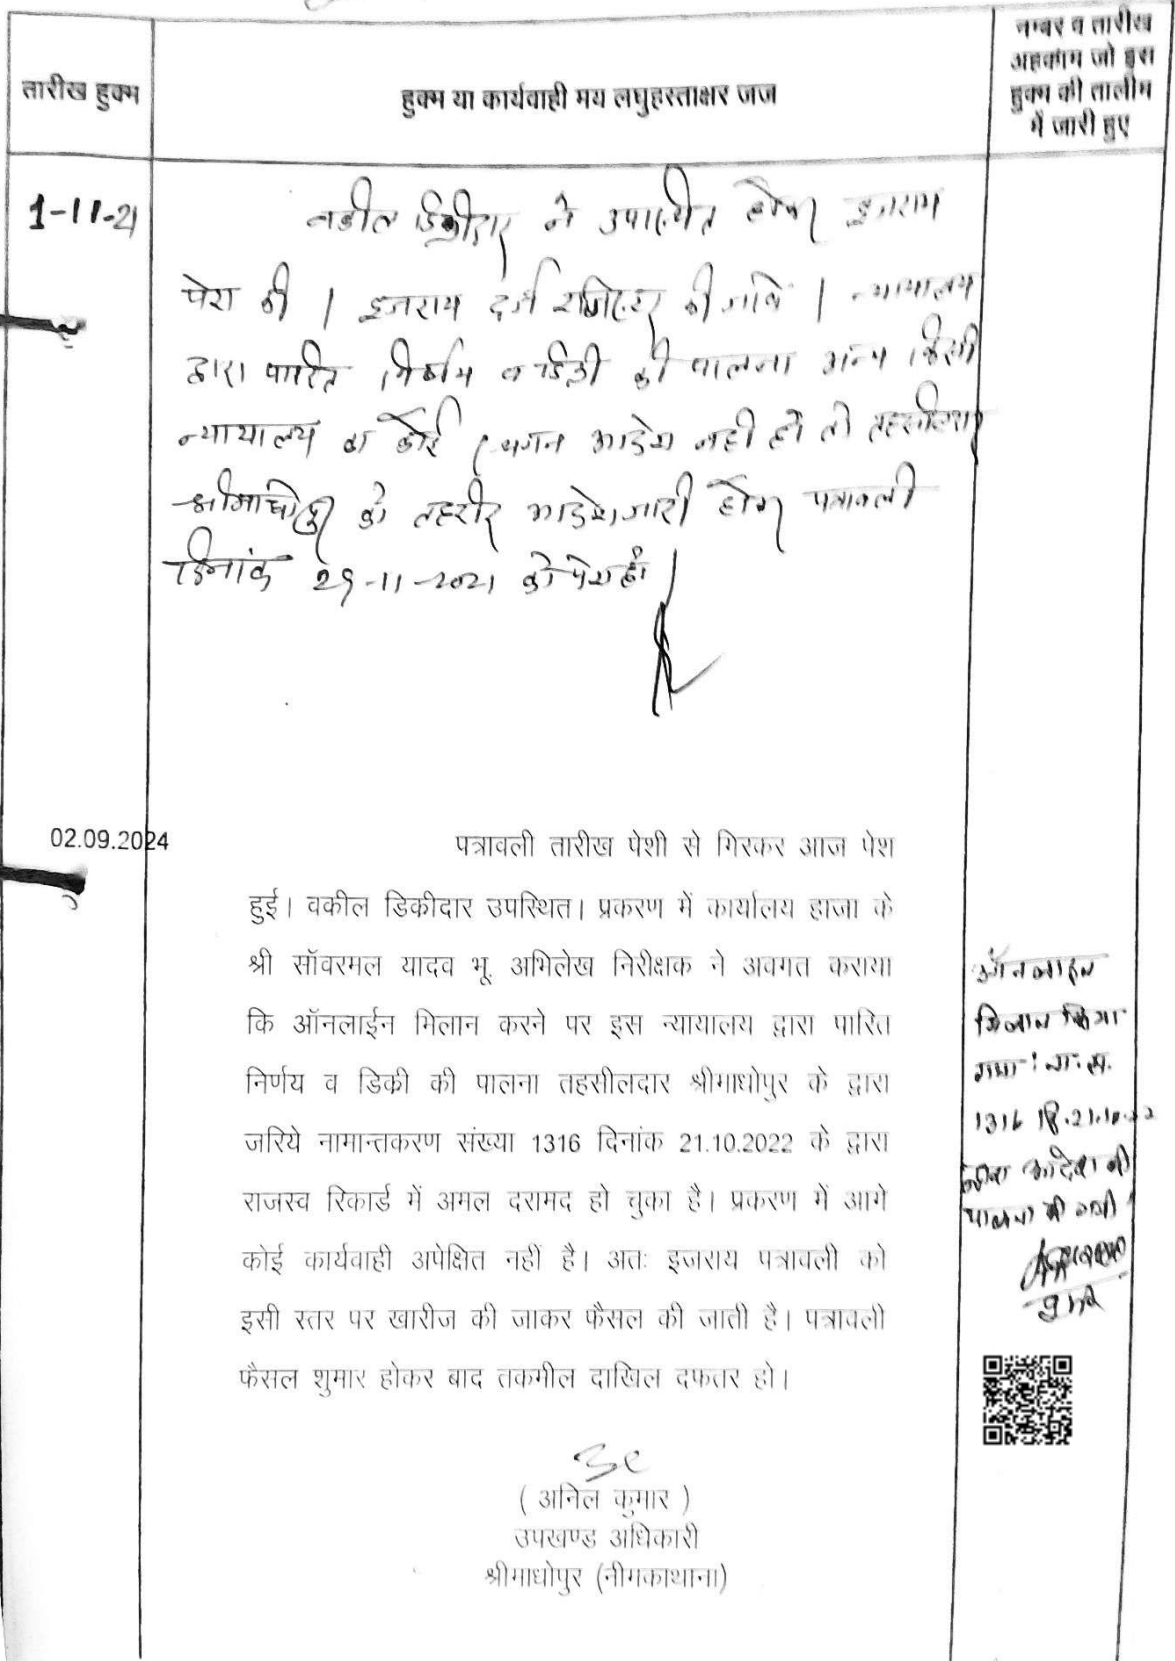 तारीख हुक्म
हुक्म या कार्यवाही मय लघुहस्ताक्षर जज
नम्बर व तारीख
अहकाम जो इस
हुक्म की तालीम
में जारी हुए
1-11-21
वकील डिक्रीदार ने उपस्थित होकर इजराय
पेश की । इजराय दर्ज रजिस्टर की जावे । न्यायालय
द्वारा पारित निर्णय व डिक्री की पालना अन्य किसी
न्यायालय का कोई स्थगन आदेश नही हो तो तहसीलदार
श्रीमाधोपुर को तहरीर आदेश जारी होकर पत्रावली
दिनांक 29-11-2021 को पेश हो ।
02.09.2024
पत्रावली तारीख पेशी से गिरकर आज पेश
हुई। वकील डिकीदार उपस्थित। प्रकरण में कार्यालय हाजा के
श्री सॉवरमल यादव भू. अभिलेख निरीक्षक ने अवगत कराया
कि ऑनलाईन मिलान करने पर इस न्यायालय द्वारा पारित
निर्णय व डिकी की पालना तहसीलदार श्रीमाधोपुर के द्वारा
जरिये नामान्तकरण संख्या 1316 दिनांक 21.10.2022 के द्वारा
राजस्व रिकार्ड में अमल दरामद हो चुका है। प्रकरण में आगे
कोई कार्यवाही अपेक्षित नहीं है। अतः इजराय पत्रावली को
इसी स्तर पर खारीज की जाकर फैसल की जाती है। पत्रावली
फैसल शुमार होकर बाद तकमील दाखिल दफतर हो।
ऑनलाइन
मिलान किया
गया ना.स.
1316 दि.21.10.22
आदेश की
पालना की गयी
( अनिल कुमार )
उपखण्ड अधिकारी
श्रीमाधोपुर (नीमकाथाना)